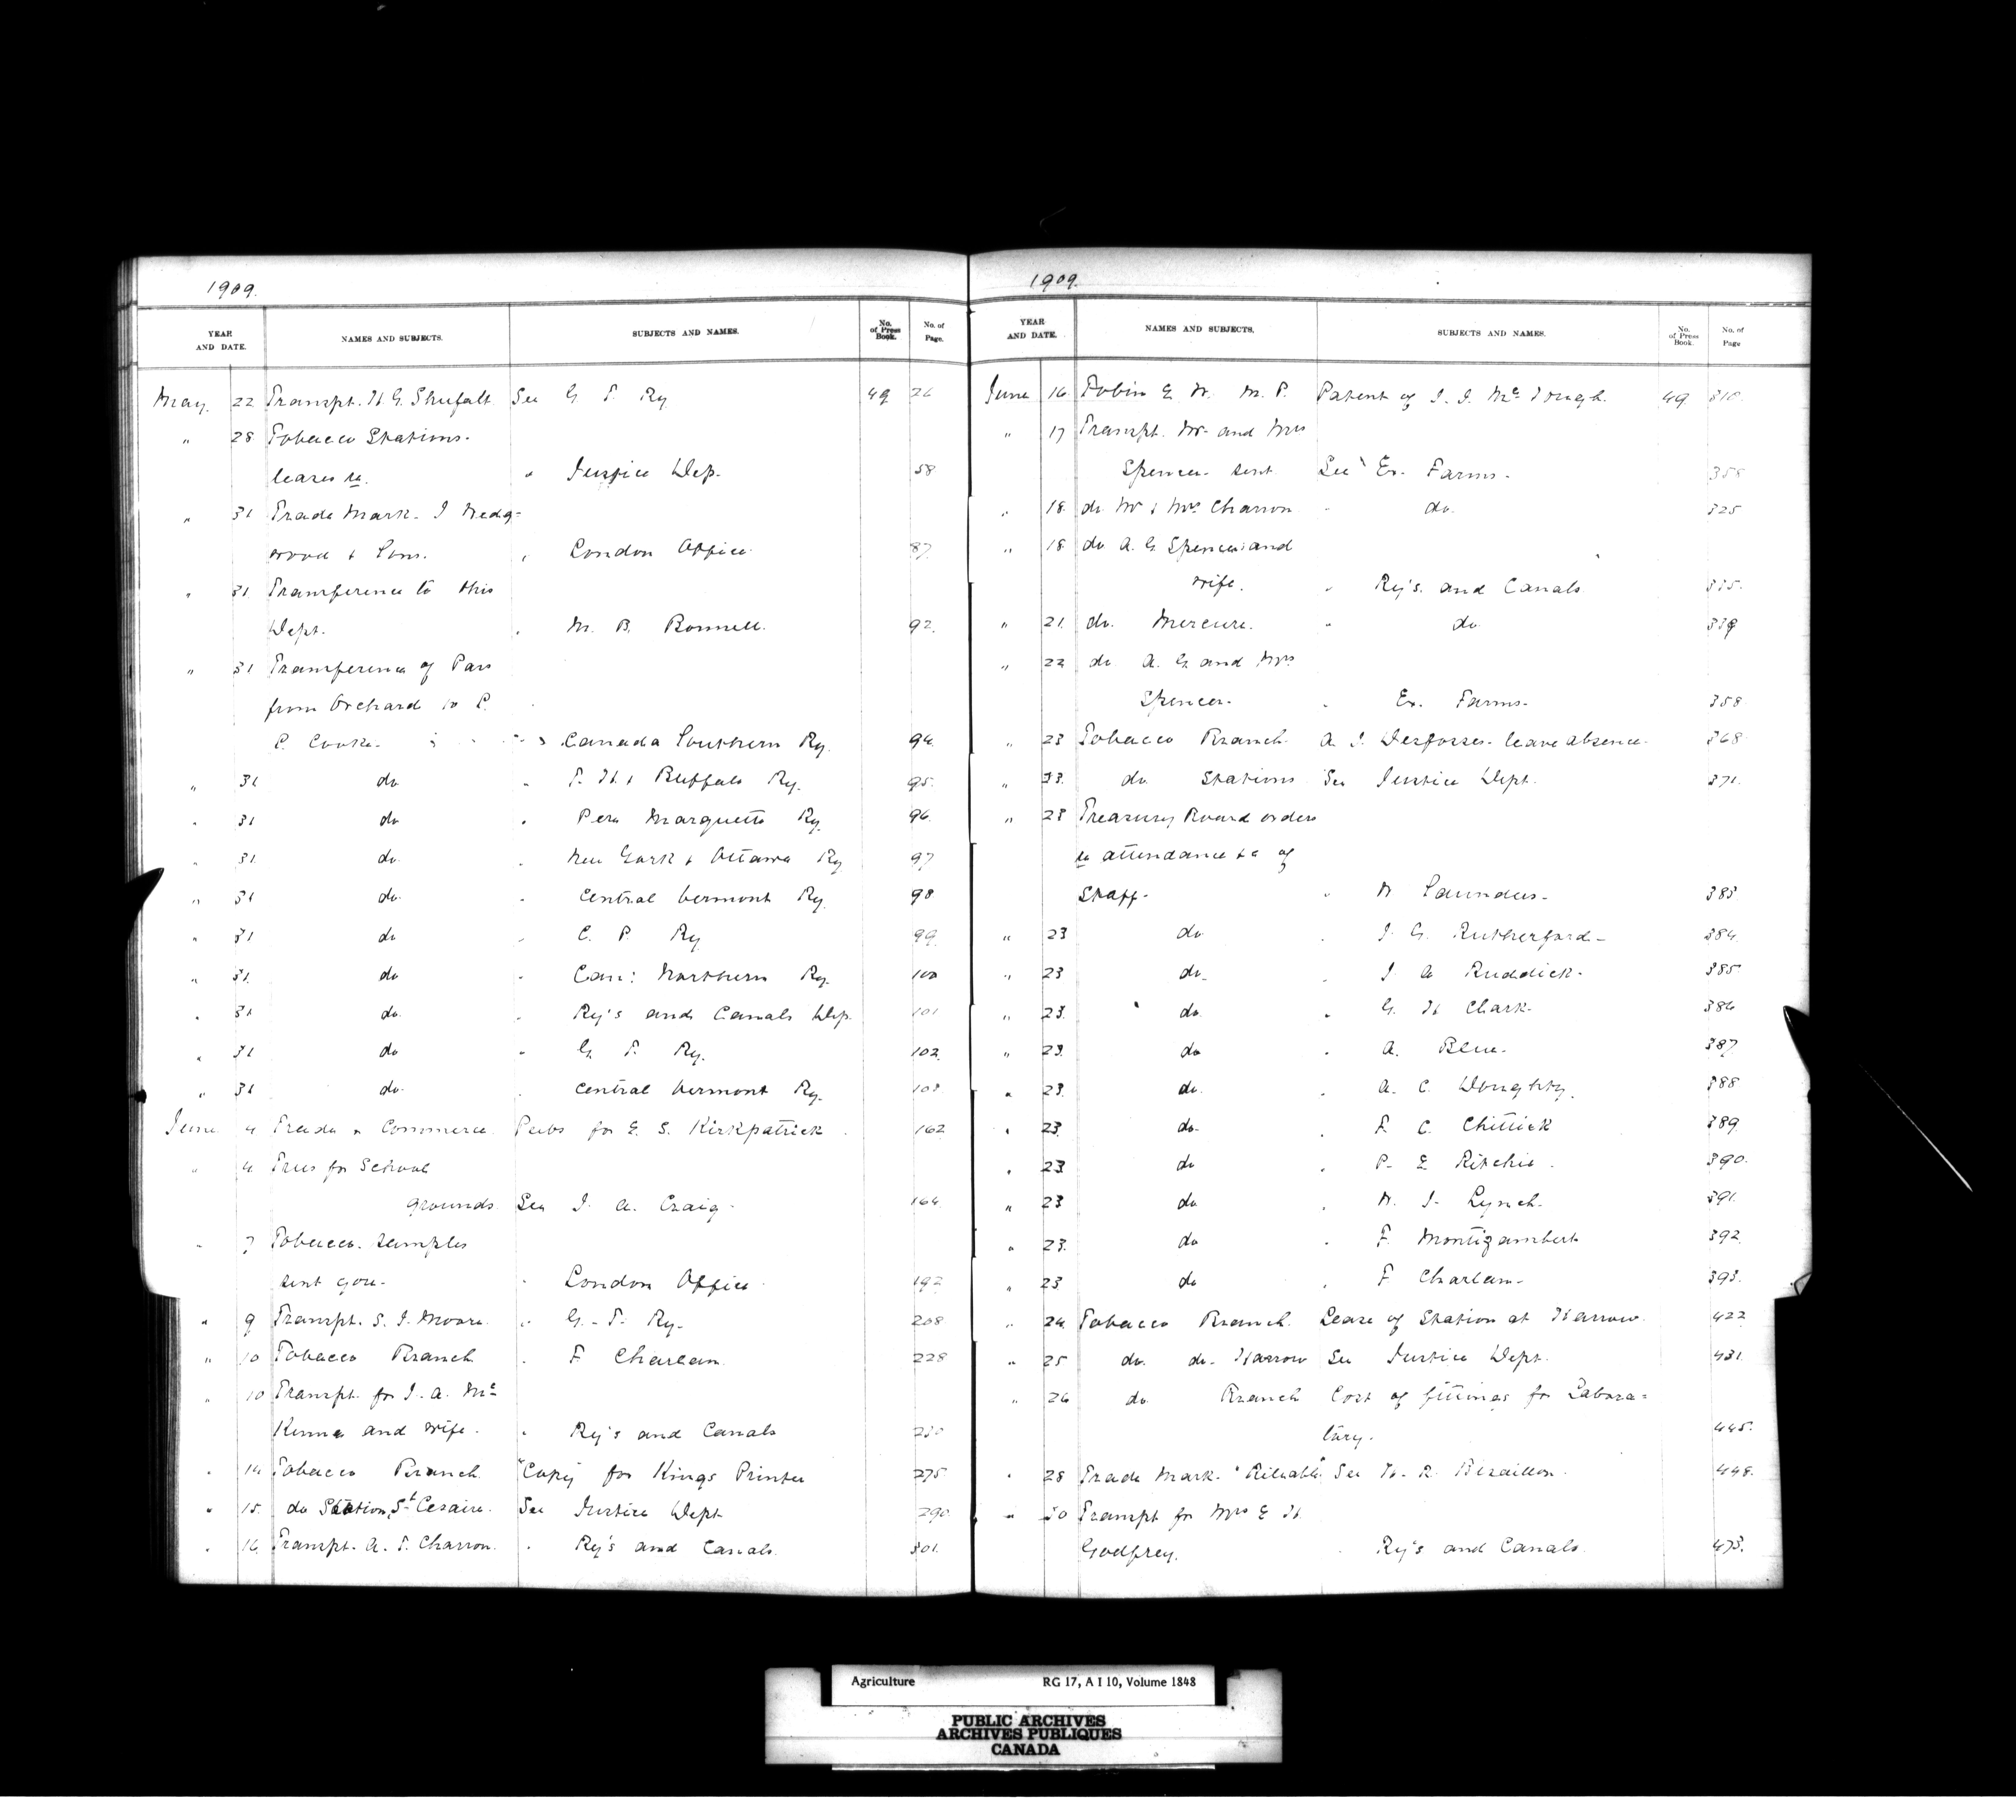 1909.
YEAR AND DATE. NAMES AND SUBJECTS. SUBJECTS AND NAMES. No. of Press Book. No. of Page.
May. 22 Transpt. H. G. Shufalt See G T Ry 49 26
" 28 Tobacco Stations.
leases re. " Justice Dep. 58
" 31 Trade Mark. J Wedg=
wood & Sons. " London Office 87
" 31 Transference to this
Dept. " M. B. Bonnell. 92.
" 31 Transference of Pass
from Orchard to P.
P. Cooke. Canada Southern Ry. 94
" 31 do " T. H. & Buffalo Ry. 95.
" 31 do " Pere Marquette Ry. 96.
" 31. do. " New York & Ottawa Ry 97
" 31 do. " Central Vermont Ry. 98
" 31 do " C. P. Ry 99
" 31. do " Can: Northern Ry. 100
" 31 do. " Ry's and Canals Dep. 101
" 31 do " G. T. Ry. 102.
" 31 do. " Central Vermont Ry. 103
June 4 Trade & Commerce. Pubs for E. S. Kirkpatrick. 162
" 4 Trees for School
grounds. See J. A. Craig. 164
" 7 Tobacco. samples
sent you. " London Office. 192
" 9 Transpt. S. J. Moore. " G. T. Ry. 208
" 10 Tobacco Branch " F Charlan. 228
" 10 Transpt. for J. A. Mc
Kenna and wife. " Ry's and Canals 230
" 14 Tobacco Branch "Copy for Kings Printer 275
" 15. do Station, St Cesaire. See Justice Dept 290.
" 16. Transpt. A. T. Charron. " Ry's and Canals. 301.
1909.
YEAR AND DATE. NAMES AND SUBJECTS. SUBJECTS AND NAMES. No. of Press Book. No. of Page
June 16. Tobin E. W. M. P. Patent of J. J. Mc Tough. 49 310.
" 17 Transpt. Mr. and Mrs
Spencer sent See Ex. Farms. 358
" 18. do Mr & Mrs Charron. " do. 325
" 18 do A. G. Spencer and
wife. " Ry's. and Canals. 335.
" 21. do. Mercure. " do 339
" 22 do A. G. and Mrs
Spencer. " Ex. Farms. 358
" 23 Tobacco Branch. A. J. Desfosses. leave absence. 368
" 23. do Stations See Justice Dept. 371.
" 23 Treasury Board orders
re attendance &c of
Staff. " W Saunders. 383.
" 23 do " J. G. Rutherford. 384.
" 23 do. " J A Ruddick. 385
" 23. do. " G. H Clark. 386
" 23. do " A. Blue. 387
" 23. do. " A. C. Doughty. 388
" 23. do. " F. C. Chittick 389
" 23 do " P. E Ritchie. 390.
" 23 do " W. J. Lynch. 391.
" 23. do " F. Montizambert 392.
" 23 do " F Charlan. 393.
" 24. Tobacco Branch. Lease of Station at Harrow. 422
" 25 do. do. Harrow See Justice Dept. 431.
" 26 do. Branch Cost of fittings for Labora=
tory. 445.
" 28 Trade Mark. "Reliable" See H. R. 448.
" 30 Transpt for Mrs E H
Godfrey. " Ry's and Canals. 473.
Agriculture RG 17, A I 10, Volume 1848
PUBLIC ARCHIVES
ARCHIVES PUBLIQUES
CANADA